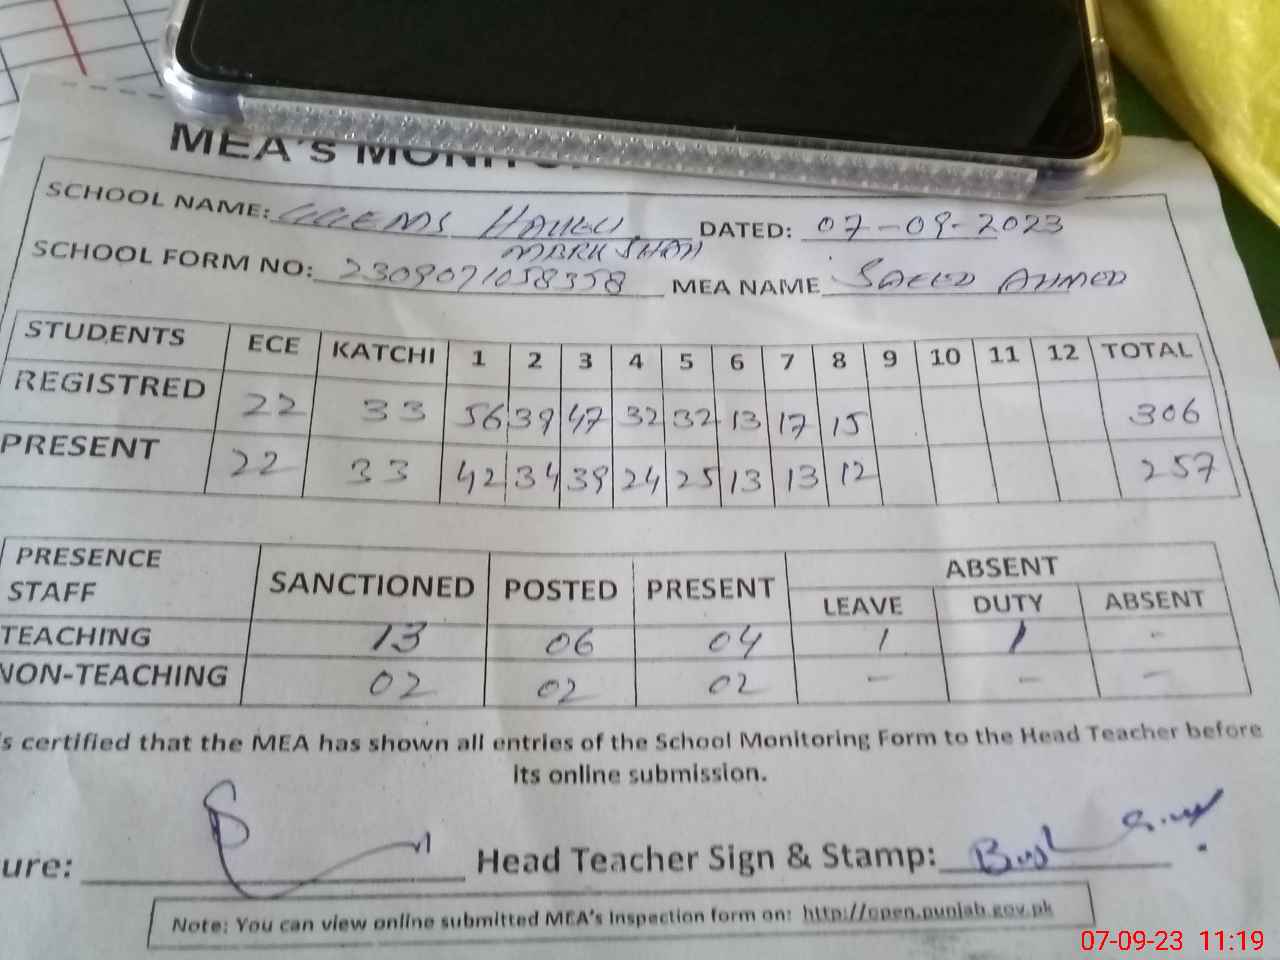 MEA's MONITO
SCHOOL NAME: GGEMS DATED: 07-09-2023
MARK SHAH
SCHOOL FORM NO: 2309071058358 MEA NAME SAEED AHMED
STUDENTS ECE KATCHI 1 2 3 4 5 6 7 8 9 10 11 12 TOTAL
REGISTRED 22 33 56 39 47 32 32 13 17 15 306
PRESENT 22 33 42 34 39 24 25 13 13 12 257
PRESENCE STAFF SANCTIONED POSTED PRESENT ABSENT
LEAVE DUTY ABSENT
TEACHING 13 06 04 1 1 -
NON-TEACHING 02 02 02 - - -
s certified that the MEA has shown all entries of the School Monitoring Form to the Head Teacher before
its online submission.
ure: Head Teacher Sign & Stamp:
Note: You can view online submitted MEA's inspection form on: http://open.punjab.gov.pk
07-09-23 11:19